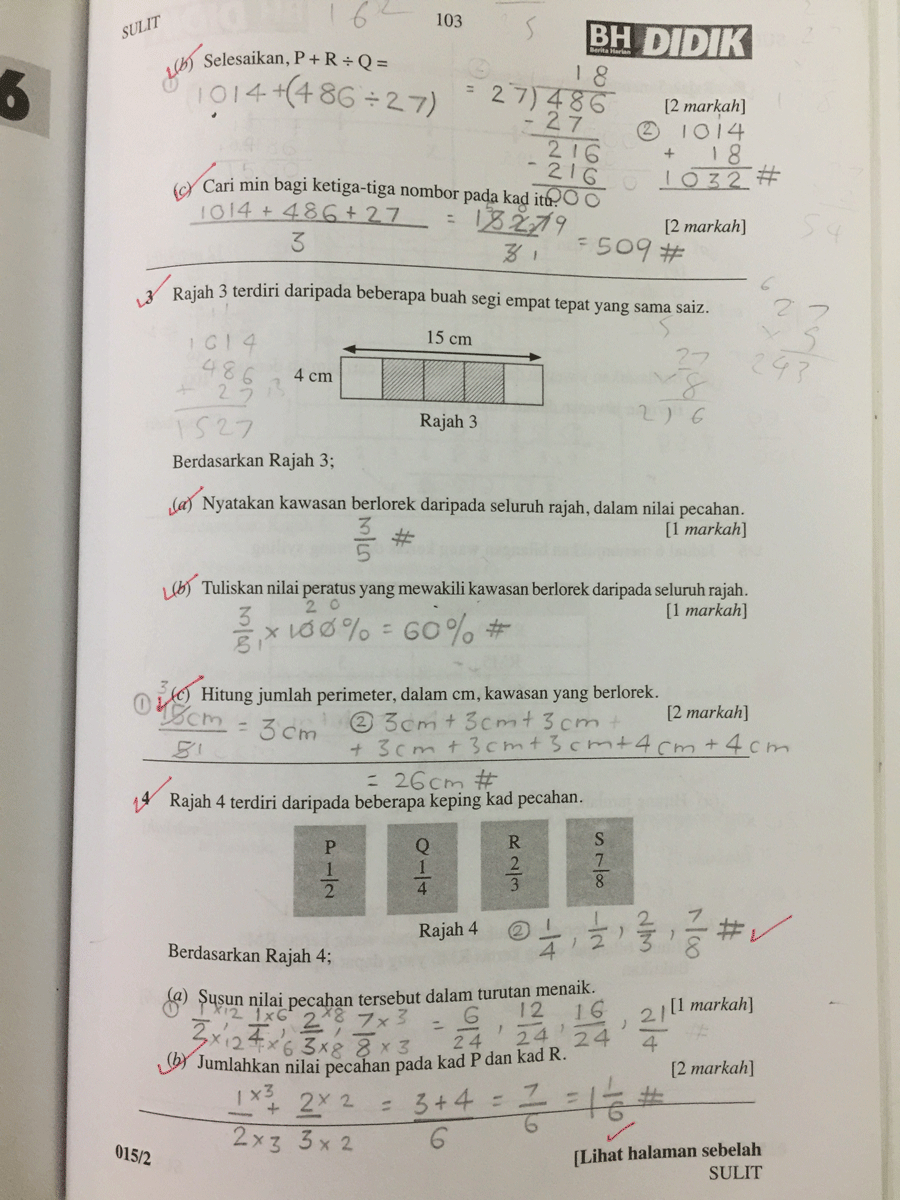 SULIT
103
BH DIDIK
Berita Harian
6
(b) Selesaikan, P + R ÷ Q =
[2 markah]
① 1014 + (486 ÷ 27)
② = 27)486
18
- 27
216
- 216
000
② 1014
+ 18
1032 #
(c) Cari min bagi ketiga-tiga nombor pada kad itu.
[2 markah]
1014 + 486 + 27
3
= 509 #
3 Rajah 3 terdiri daripada beberapa buah segi empat tepat yang sama saiz.
1014
486
+ 27
1527
15 cm
4 cm
Rajah 3
27
× 8
216
27
5
243
54
Berdasarkan Rajah 3;
(a) Nyatakan kawasan berlorek daripada seluruh rajah, dalam nilai pecahan.
[1 markah]
3/5 #
(b) Tuliskan nilai peratus yang mewakili kawasan berlorek daripada seluruh rajah.
[1 markah]
20
3/5 1 × 100% = 60% #
(c) Hitung jumlah perimeter, dalam cm, kawasan yang berlorek.
[2 markah]
① 3
15cm/5 1 = 3cm
② 3cm + 3cm + 3cm +
+ 3cm + 3cm + 3cm + 4cm + 4cm
= 26cm #
4 Rajah 4 terdiri daripada beberapa keping kad pecahan.
P Q R S
1/2 1/4 2/3 7/8
Rajah 4
② 1/4, 1/2, 2/3, 7/8 #
Berdasarkan Rajah 4;
(a) Susun nilai pecahan tersebut dalam turutan menaik.
[1 markah]
① 1×12/2×12, 1×6/4×6, 2×8/3×8, 7×3/8×3 = 6/24, 12/24, 16/24, 21/4
(b) Jumlahkan nilai pecahan pada kad P dan kad R.
[2 markah]
1×3/2×3 + 2×2/3×2 = 3+4/6 = 7/6 = 1 1/6 #
015/2
[Lihat halaman sebelah
SULIT